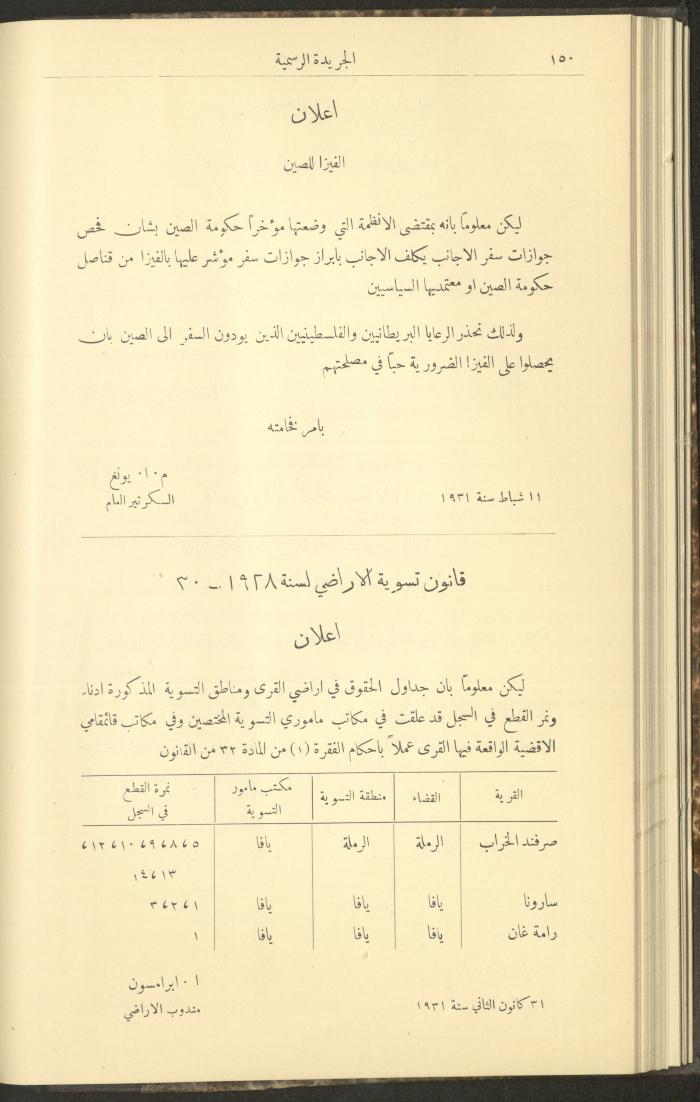 ١٥٠ الجريدة الرسمية
اعلان
الفيزا للصين
ليكن معلوماً بانه بمقتضى الانظمة التي وضعتها مؤخراً حكومة الصين بشان فحص
جوازات سفر الاجانب يكلف الاجانب بابراز جوازات سفر مؤشر عليها بالفيزا من قناصل
حكومة الصين او معتمديها السياسيين
ولذلك تحذر الرعايا البريطانيين والفلسطينيين الذين يودون السفر الى الصين بان
يحصلوا على الفيزا الضرورية حباً في مصلحتهم
بامر فخامته
م٠ا٠ يونغ
١١ شباط سنة ١٩٣١ السكرتير العام
قانون تسوية الاراضي لسنة ١٩٢٨ ـ ٣٠
اعلان
ليكن معلوماً بان جداول الحقوق في اراضي القرى ومناطق التسوية المذكورة ادناه
ونمر القطع في السجل قد علقت في مكاتب ماموري التسوية المختصين وفي مكاتب قائمقامي
الاقضية الواقعة فيها القرى عملاً باحكام الفقرة (١) من المادة ٣٢ من القانون
القرية القضاء منطقة التسوية مكتب مامور التسوية نمرة القطع في السجل
صرفند الخراب الرملة الرملة يافا ٥ و ٨ و ٩ و ١٠ و ١٢ و
١٣ و ١٤
سارونا يافا يافا يافا ١ و ٢ و ٣
رامة غان يافا يافا يافا ١
ا ٠ ابرامسون
٣١ كانون الثاني سنة ١٩٣١ مندوب الاراضي